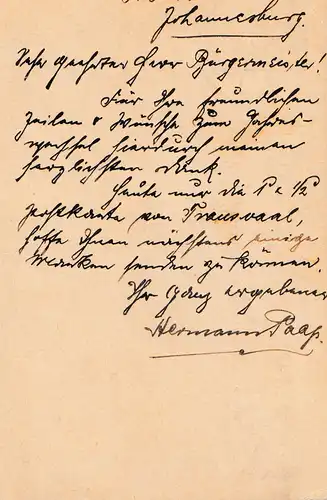 Johannesburg.
Sehr geehrter Herr Bürgermeister!
Für Ihre freundlichen
Zeilen & Wünsche zum Jahres-
wechsel hierdurch meinen
herzlichsten Dank.
Heute nur die 1 & 1/2
Postkarte von Transvaal,
hoffe Ihnen nächstens einige
Marken senden zu können.
Ihr ganz ergebener
Hermann Paap.